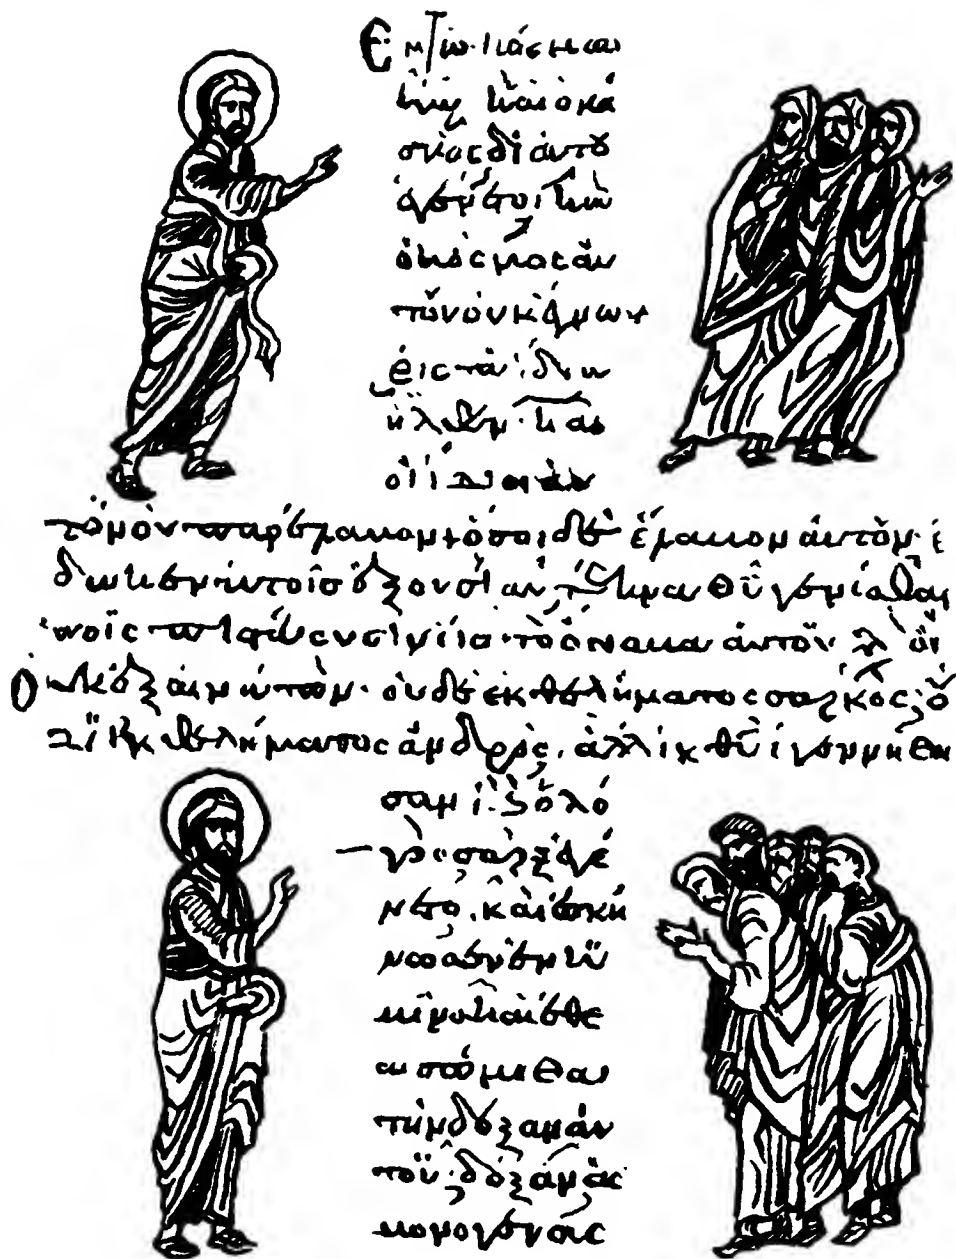 Ἐν τῷ κόσμῳ
ἦν καὶ ὁ κό
σμος δι αὐτοῦ
ἐγένετο, καὶ
ὁ κόσμος αὐ
τὸν οὐκ ἔγνω·
εἰς τὰ ἴδια
ἦλθεν· καὶ
οἱ ἴδιοι αὐ
τὸν οὐ παρέλαβον· ὅσοι δὲ ἔλαβον αὐτὸν· ἔ
δωκεν αὐτοῖς ἐξουσίαν, τέκνα θῦ γενέσθαι
τοῖς πιστεύουσιν εἰς τὸ ὄνομα αὐτοῦ οἳ
οὐκ ἐξ αἱμάτων· οὐδὲ ἐκ θελήματος σαρκὸς, οὐ
δὲ ἐκ θελήματος ἀνδρὸς, ἀλλ ἐκ θῦ ἐγεννήθη
σαν· ὁ λό
γος σὰρξ ἐγέ
νετο, καὶ ἐσκή
νωσεν ἐν ἡ
μῖν· καὶ ἐθε
ασάμεθα
τὴν δόξαν αὐ
τοῦ· δόξαν ὡς
μονογενοῦς